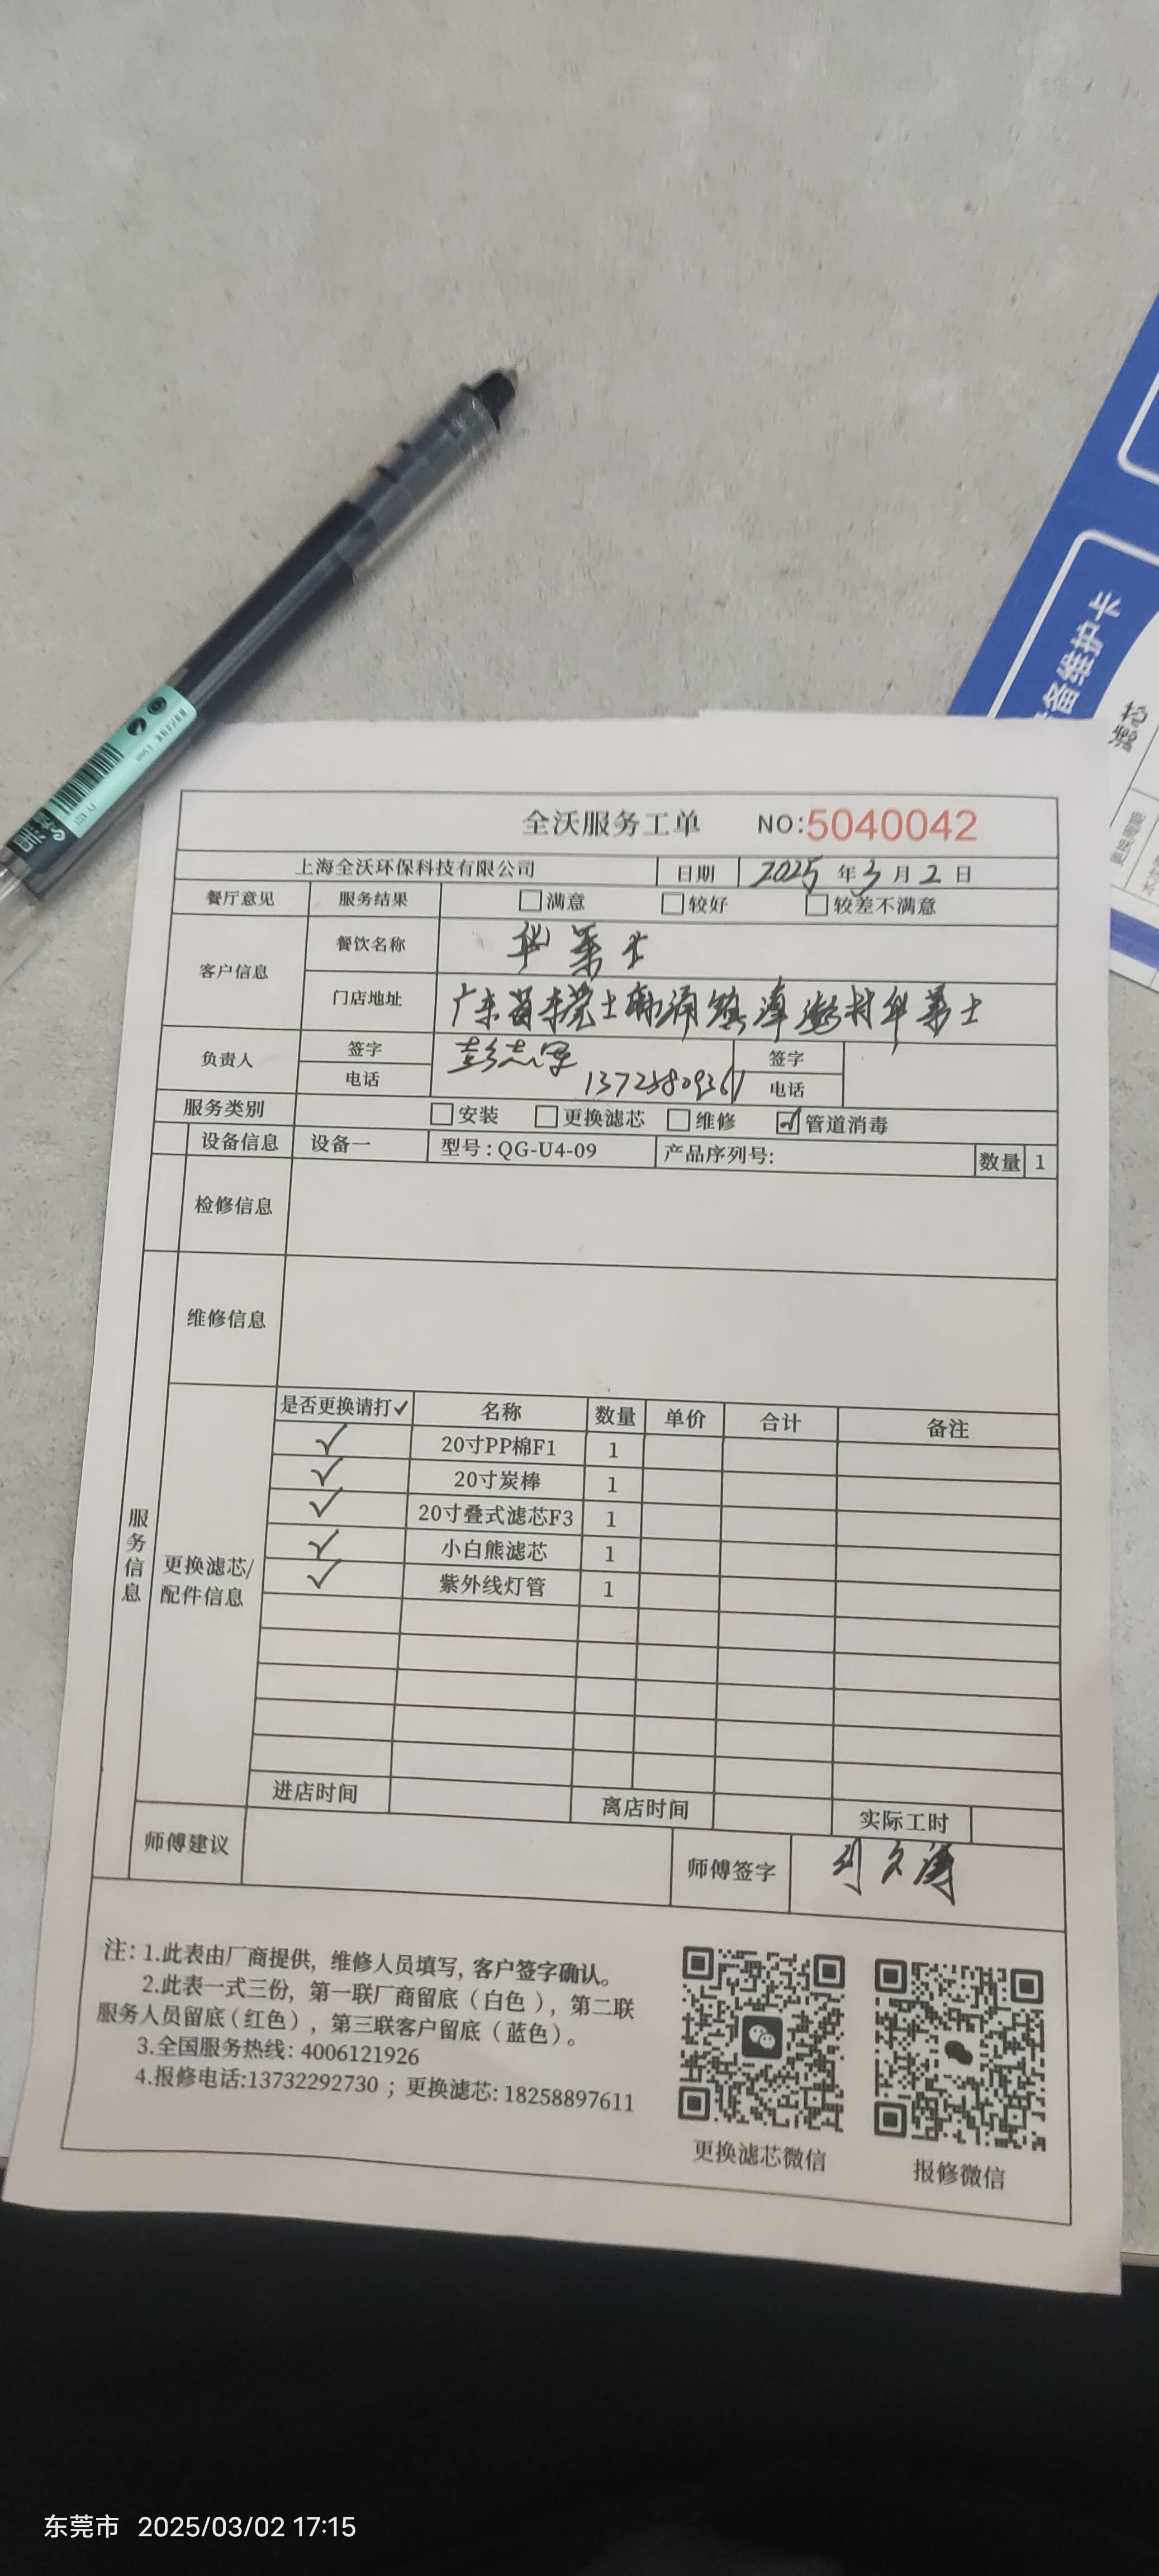 备维护卡
全沃服务工单 NO:5040042
上海全沃环保科技有限公司 日期 2025年3月2日
餐厅意见 服务结果 □满意 □较好 □较差不满意
客户信息 餐饮名称 华莱士
门店地址 广东省东莞士 涌镇漳澎村华莱士
负责人 签字 彭志军 签字
电话 电话
服务类别 □安装 □更换滤芯 □维修 ☑管道消毒
设备信息 设备一 型号:QG-U4-09 产品序列号: 数量 1
检修信息
维修信息
服务信息
更换滤芯/配件信息
是否更换请打✓ 名称 数量 单价 合计 备注
✓ 20寸PP棉F1 1
✓ 20寸炭棒 1
✓ 20寸叠式滤芯F3 1
✓ 小白熊滤芯 1
✓ 紫外线灯管 1
进店时间 离店时间 实际工时
师傅建议 师傅签字
注: 1.此表由厂商提供, 维修人员填写, 客户签字确认。
2.此表一式三份, 第一联厂商留底(白色), 第二联
服务人员留底(红色), 第三联客户留底(蓝色)。
3.全国服务热线: 4006121926
4.报修电话:13732292730 ; 更换滤芯: 18258897611
更换滤芯微信 报修微信
东莞市 2025/03/02 17:15